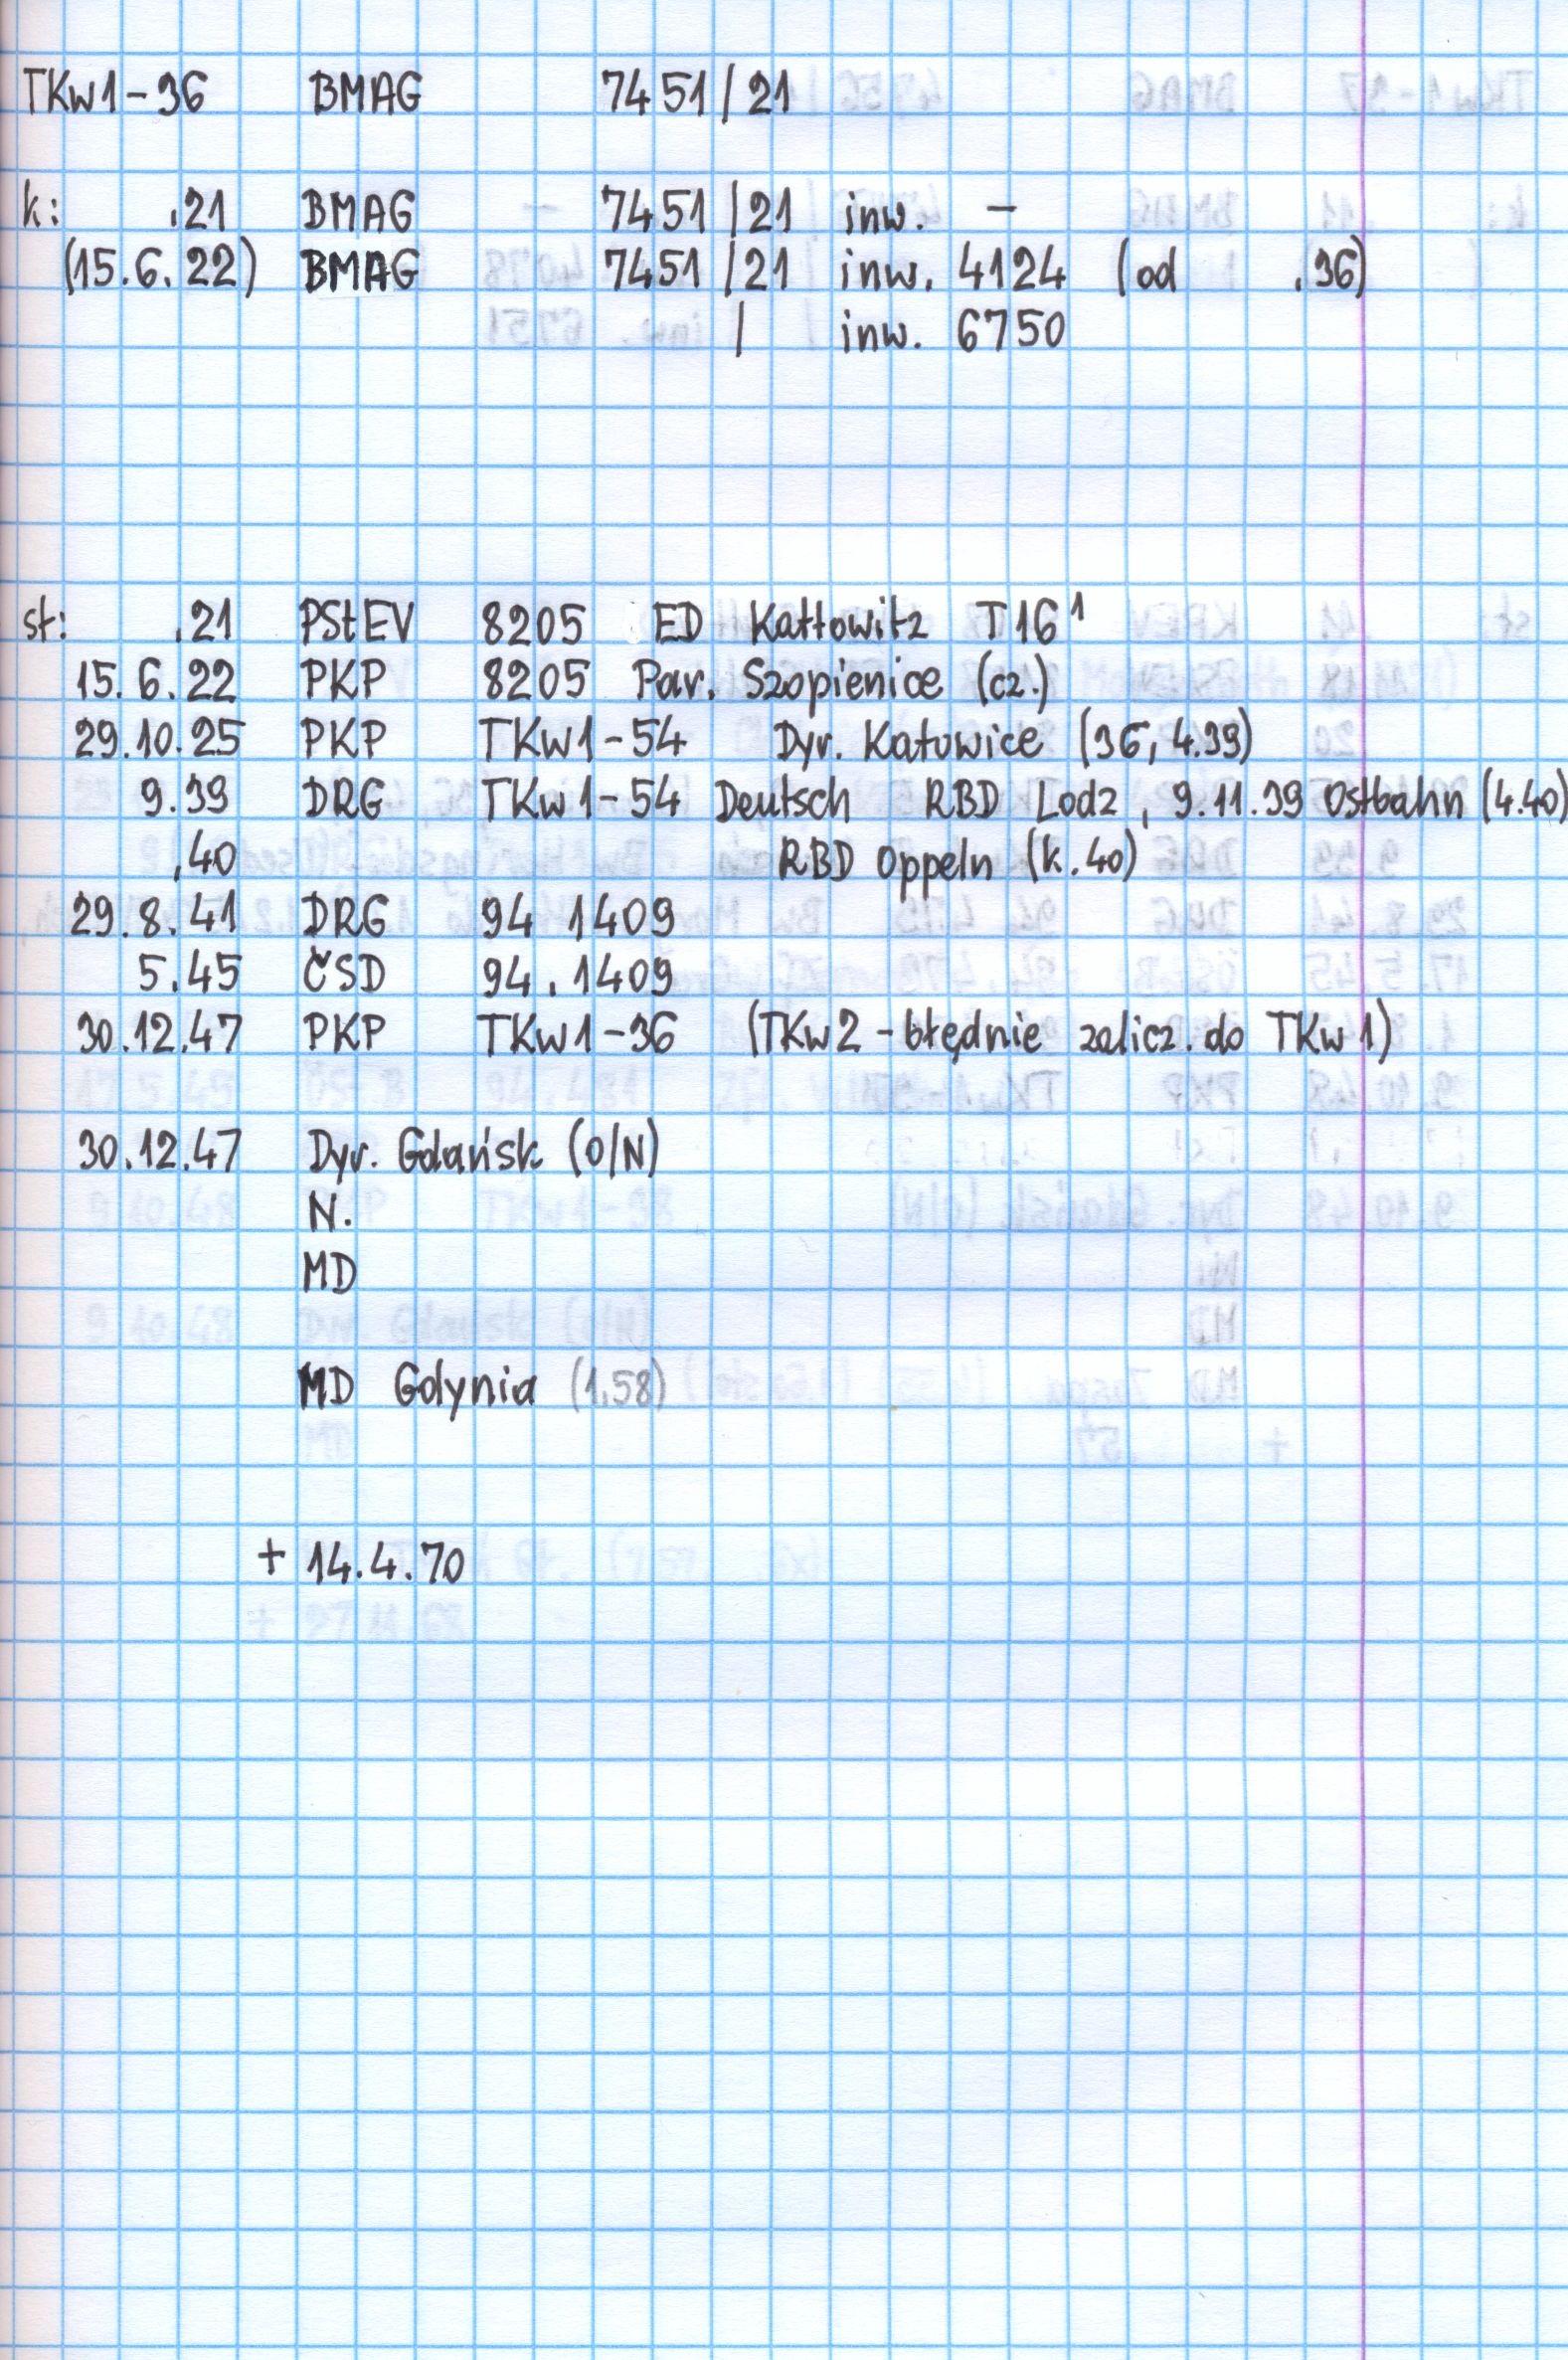 TKw1-36 BMAG 7451/21
k: .21 BMAG 7451/21 inw. -
(15.6.22) BMAG 7451/21 inw. 4124 (od .36)
/ inw. 6750
st: .21 PStEV 8205 ED Kattowitz T16¹
15.6.22 PKP 8205 Par. Szopienice (cz.)
29.10.25 PKP TKw1-54 Dyr. Katowice (36, 4.39)
9.39 DRG TKw1-54 Deutsch RBD Lodz, 9.11.39 Ostbahn (4.40)
.40 RBD Oppeln (k.40)
29.8.41 DRG 94 1409
5.45 ČSD 94.1409
30.12.47 PKP TKw1-36 (TKw2 - błędnie zalicz. do TKw1)
30.12.47 Dyr. Gdańsk (O/N)
N.
MD
MD Gdynia (1.58)
+ 14.4.70